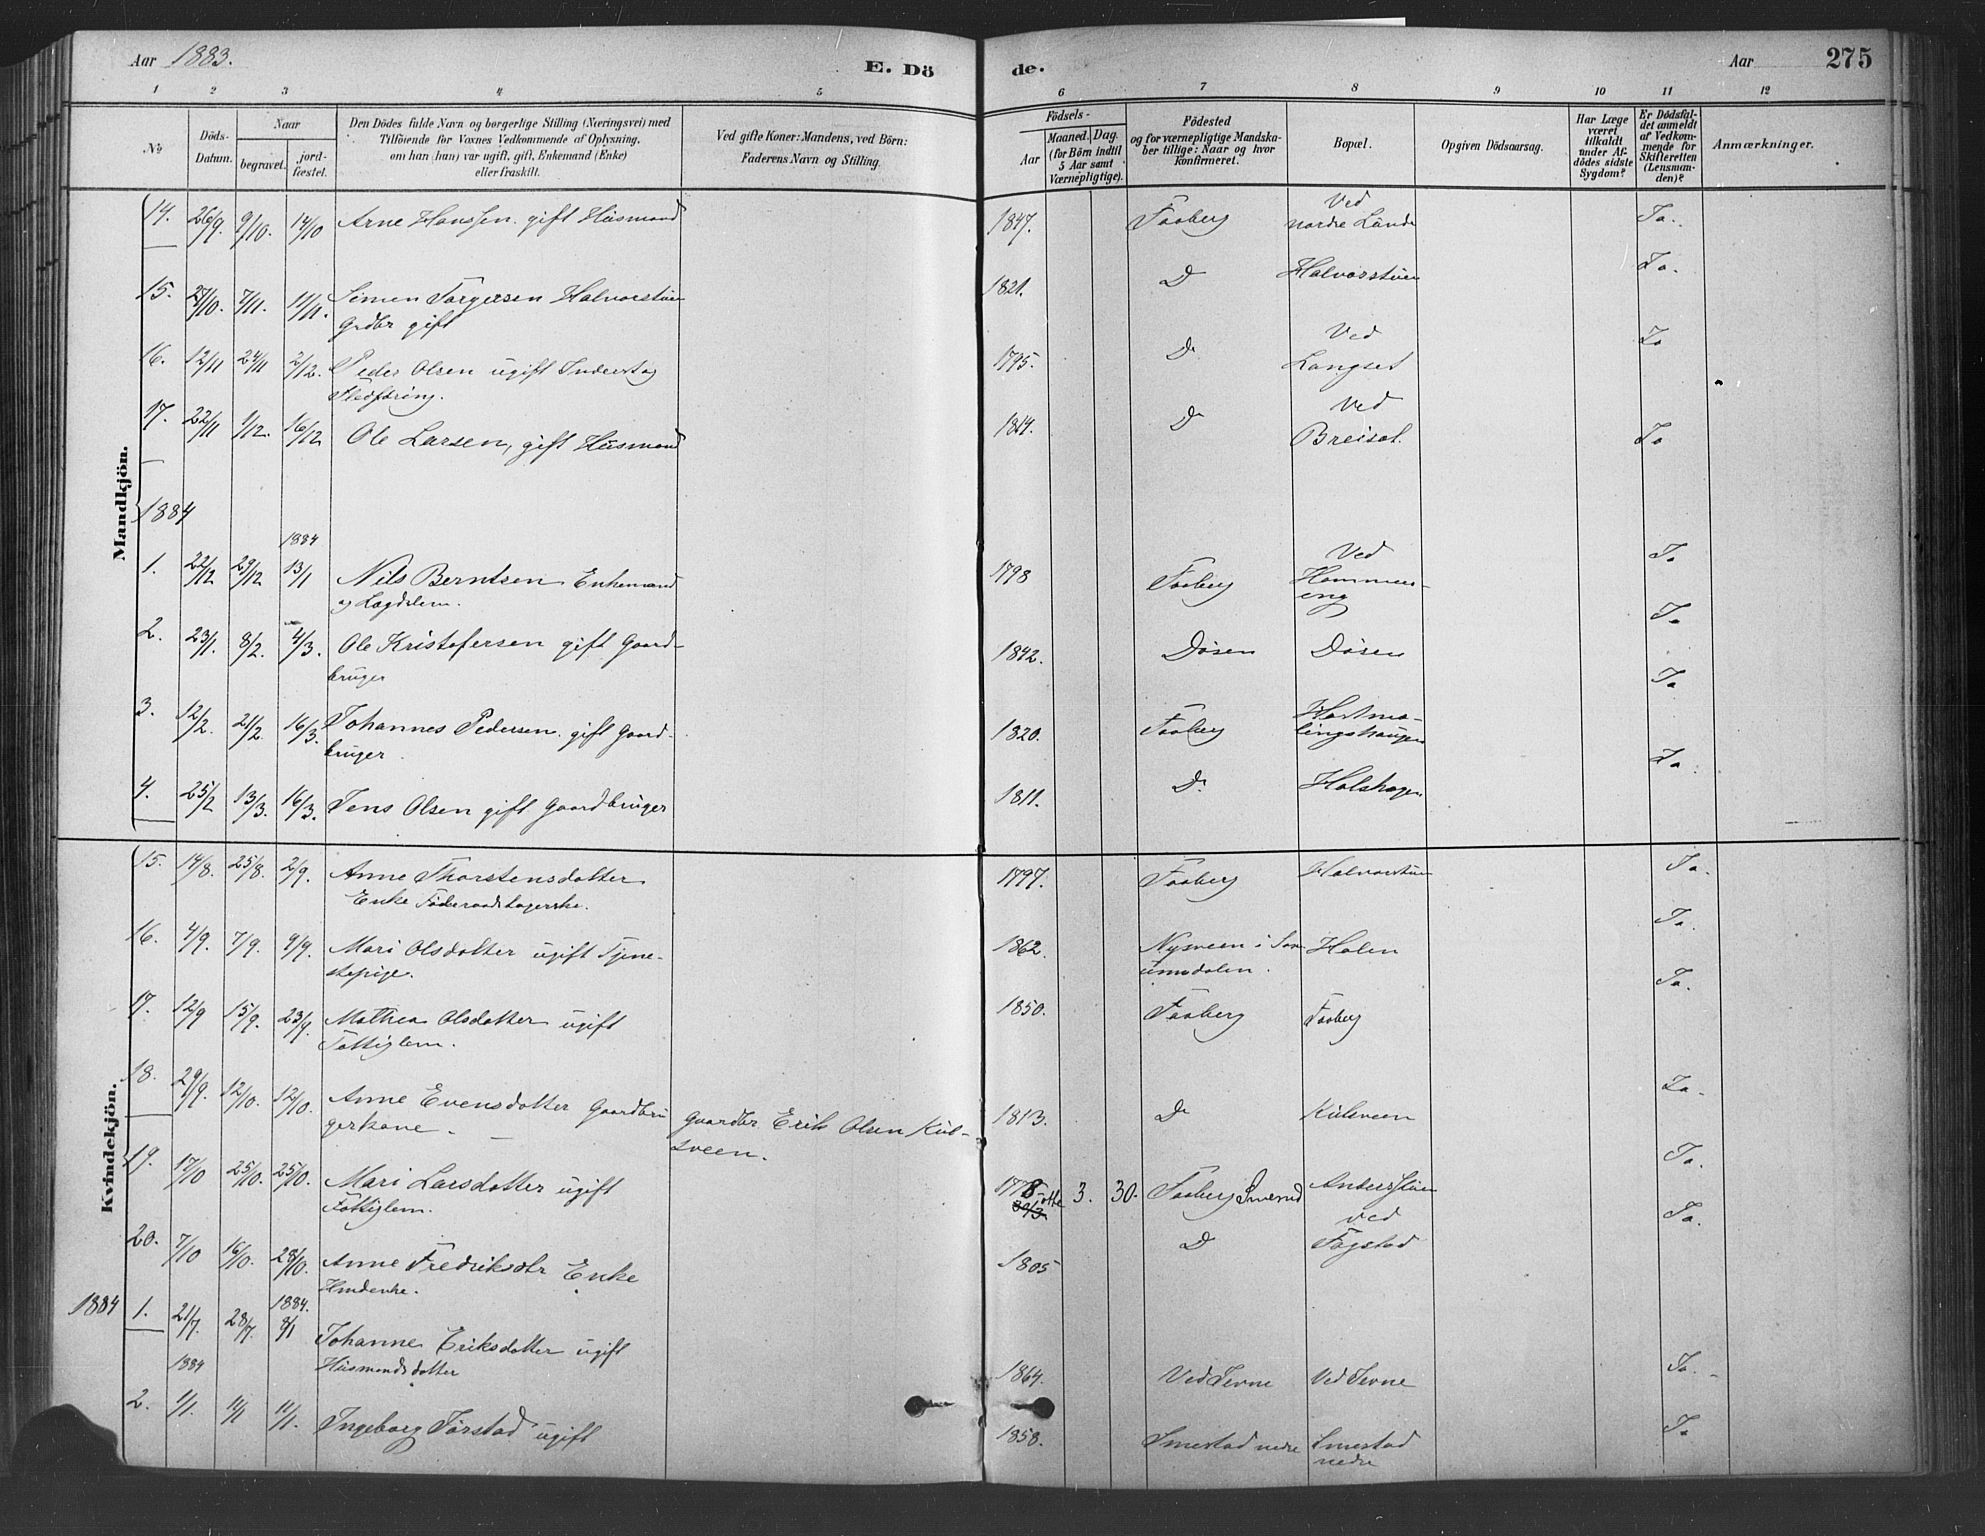 Aar 1883. E. Dö de. Aar 275
1 2 3 4 5 6 7 8 9 10 11 12
No
Döds-Datum.
Naar
begravet.
jord-fæstet.
Den Dödes fulde Navn og borgerlige Stilling (Næringsvei) med
Tilföiende for Voxnes Vedkommende af Oplysning,
om han (hun) var ugift, gift, Enkemand (Enke)
eller fraskilt.
Ved gifte Koner: Mandens, ved Börn:
Faderens Navn og Stilling.
Födsels-
Aar
Maaned. Dag.
(for Börn indtil
5 Aar samt
Værnepligtige).
Födested
og for værnepligtige Mandska-
ber tillige: Naar og hvor
konfirmeret.
Bopæl.
Opgiven Dödsaarsag.
Har Læge
været
tilkaldt
under Af-
dödes sidste
Sygdom?
Er Dödsfal-
det anmeldt
af Vedkom-
mende for
Skifteretten
(Lensman-
den)?
Anmærkninger.
Mandkjön.
14. 26/9. 9/10. 14/10 Arne Hanssen. gift Husmand 1847. Faaberg Ved nordre Lunde Ja.
15. 27/10. 7/11. 11/11. Simen Torgersen Halvorstuen
Grdbr gift 1821. Do Halvorstuen Ja.
16. 12/11 24/11 2/12. Peder Olsen ugift Inderst og
Fledføring. 1795. Do Ved Langset Ja
17. 22/11 1/12. 16/12 Ole Larsen, gift Husmand 1814. Do Ved Breisat. Ja
1884
1884
1. 22/12 29/12 13/1 Nils Berntsen Enkemand
og Lægdslem. 1798 Faaberg Ved Hammer-
eng Ja
2. 23/1. 8/2. 4/3. Ole Kristofersen gift Gaard-
bruger 1842. Døsen Døsen Ja
3. 12/2. 21/2. 16/3. Johannes Pedersen. gift Gaard-
bruger. 1820. Faaberg Ja
4. 25/2 13/3. 16/3. Jens Olsen gift Gaardbruger 1811. Do Holshagen Ja.
Kvindekjön.
15. 14/8. 25/8. 2/9. Anne Thorstensdatter
Enke Føderaadstagerske. 1797. Faaberg Halvorstuen Ja.
16. 4/9. 7/9. 9/9. Mari Olsdatter ugift Tjene-
stepige. 1862. Nysveen i
Holen Ja.
17. 12/9 15/9. 23/9. Mathea Olsdatter ugift
Fattiglem. 1850. Faaberg Faaberg Ja.
18. 29/9. 12/10. 12/10. Anne Evensdatter Gaardbru
gerkone. Gaardbr. Erik Olsen Kul-
sveen. 1813. Do Kulsveen Ja.
19. 17/10 25/10. 25/10. Mari Larsdatter ugift
Fattiglem. 1778 30/3 3. 30. Faaberg Andersstuen Ja.
20. 7/10 16/10. 28/10. Anne Fredriksdtr Enke
1805 Do ved Fogstad Ja.
1884 1. 21/7. 28/7. 1884. 8/1 Johanne Eriksdatter ugift
Husmandsdatter 1864. Ved Jevne Ved Jevne Ja.
1884
2. 1/1. 11/1 11/1. Ingeborg Jørstad ugift 1858. Smestad nedre Smestad
nedre Ja